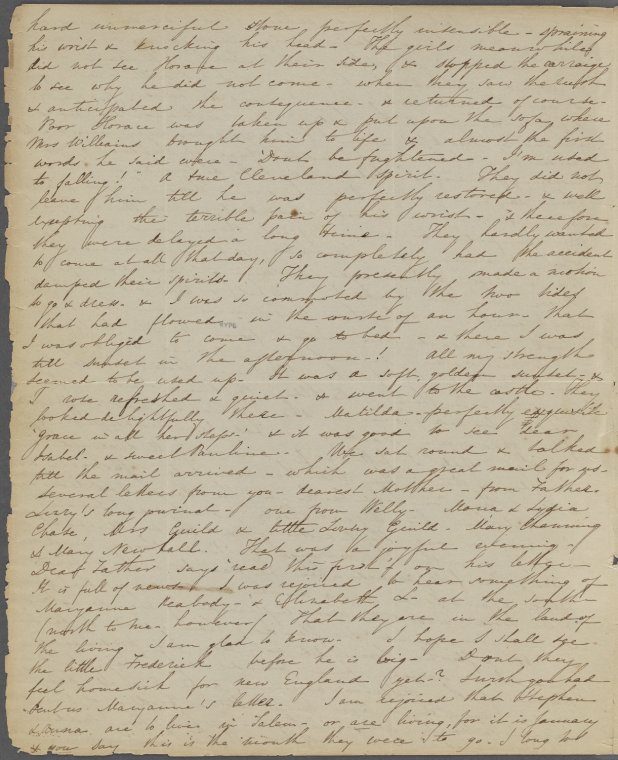 hard unmerciful stone, perfectly insensible - spraining
his wrist & knocking his head - The girls meanwhile
did not see Horace at their side, & stopped the carriage
to see why he did not come - when they saw the
& anticipated the consequence - & returned of course -
Poor Horace was taken up & put upon the sofa, where
Mrs Williams brought him to life & almost the first
words he said were - Dont be frightened - I'm used
to falling!" A true Cleveland spirit. They did not
leave him till he was perfectly restored - & well
excepting the terrible pain of his wrist - & therefore
they were delayed a long time - They hardly wanted
to come at all that day, so completely had the accident
damped their spirits - They presently made a motion
to go & dress - & I was so commoted by the two tides
that had flowed in the course of an hour - that
I was obliged to come & go to bed - & there I was
till sunset in the afternoon -! all my strength
seemed to be used up - It was a soft, golden sunset - &
I rose refreshed & quiet - & went to the castle - They
looked delightfully there - Matilda - perfectly exquisite
"grace in all her steps - & it was good to see dear
Isabel - & sweet Pauline - We sat round & talked
till the mail arrived - which was a great mail for us -
several letters from you - dearest Mother - from Father -
Lizzy's long journal - one from Welly - Maria & Lydia
Chase, Mrs Guild & little Lizzy Guild - Mary Channing
& Mary Newhall. That was a joyful evening -
Dear Father says "read this first" on his letter -
It is full of news - I was rejoiced to hear something of
Maryanne Peabody - & Elizabeth, &c - at the south
(north to me - however) That they are in the land of
the living I am glad to know - I hope I shall see
the little Frederick before he is big - Dont they
feel homesick for new England yet -? I wish you had
sent us Maryanne's letter. I am rejoiced that Stephen
& are to live in Salem - or are living, for it is January
& you say this is the month they were to go. I long to